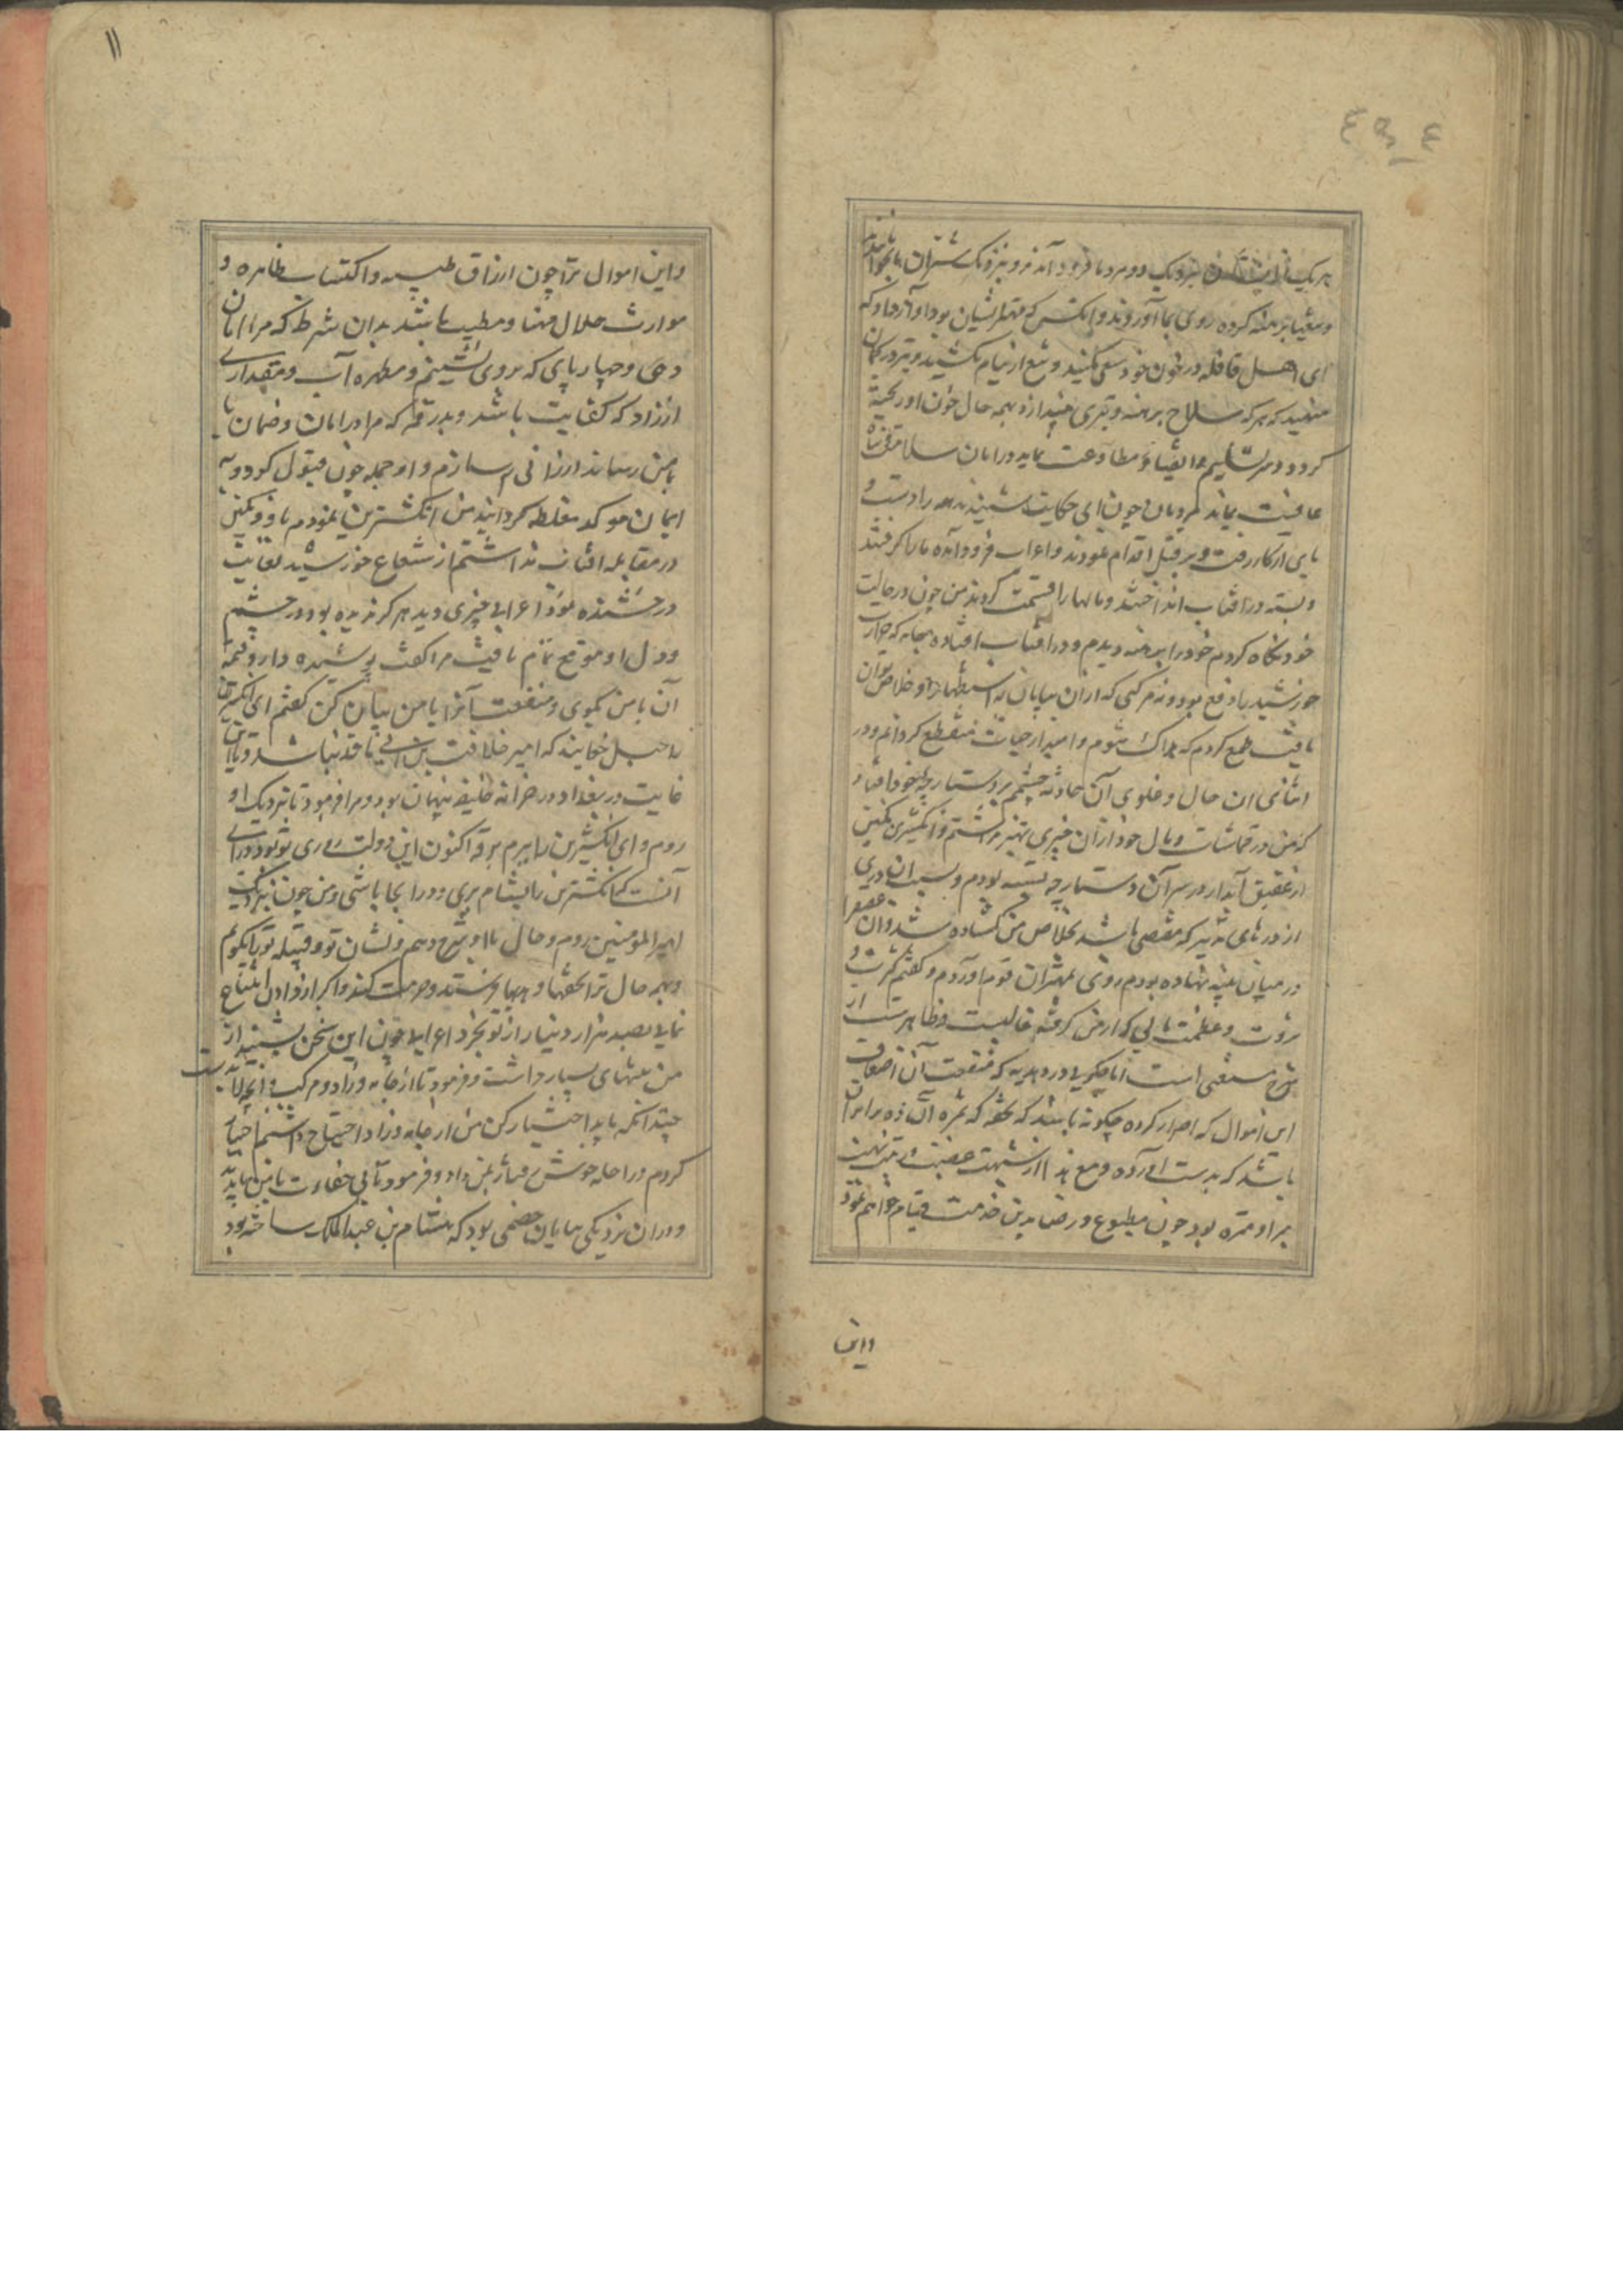 ٤_٩٤
هر یک از ایشان نزدیک دو مرد ما فرود آمدند و نزدیک شتران ما
و تیغها برهنه کرده روی بما آوردند و آنکس که مهتر ایشان بود آواز داد که
ای اهل قافله در خون خود سعی مکنید و تیغ از نیام مکشید و تیر در کمان
منهید که هر که سلاح برهنه و تیری بیندازد بهمه حال خون او ریخته
گردد و هر که تسلیم و انقیاد و مطاوعت نماید در امان سلامت و پناه
عافیت بماند کاروانیان چون این حکایت شنیدند همه را دست و
پای از کار رفت و بر قبل اقدام نمودند و اعراب فرود آمده ما را گرفتند
و بسته در آفتاب انداختند و مالها را قسمت کردند من چون در حالت
خود نگاه کردم خود را برهنه دیدم و در آفتاب افتاده نه جامه که حرارت
خورشید را دفع بود و نه مرکبی که از آن بیابان به استظهار او خلاص توان
یافت طمع کردم که هلاک شوم و امید از حیات منقطع گردانم و در
اثنای آن حال و غلوی آن حادثه چشم بر دستارچه خود افتاد
که من در قماشات و مال خود از آن چیزی بهتر نداشتم و انگشترین نگین
از عقیق آبدار در سر آن دستارچه بسته بودم و بسبب آن دری
از درهای تدبیر که مفضی باشد بخلاص من گشاده شد و آن
در میان پنبه نهاده بودم روی بمهتران قوم آوردم و گفتم کثرت و
ثروت و عظمت مالی که از من گرفته غالبست و ظاهرست از
شرح مستغنی است اما چگویی در هدیه که منفعت آن اضعاف
این اموال که احراز کرده چگونه باشد که تحفه که ثمره آن ده برابر آن
باشد که بدست آورده و مع هذا از شبهت غصب و ریبت نهب
مبرا و منزه بود چون مطبوع و رضا بدین خدمت قیام خواهم نمود
واین
۱۱
و این اموال ترا چون ارزاق طیبه و اکتساب ظاهره و
موارث حلال مهنا و مطیب باشد بدان شرط که مرا امان
دهی و چهارپای که بر وی نشینم و مطهره آب و مقداری
از زاد که کفایت باشد و بدرقه که مرا در امان و ضمان تا
بامن رساند ارزانی رسانم و او جمله چون قبول کرد و به
ایمان موکد مغلظه گردانید من انگشترین بنمودم باو و نگین
در مقابله آفتاب بداشتم از شعاع خورشید بغایت
درخشنده بود اعرابی چیزی دید هرگز ندیده بود در چشم
و دل او موقع تمام یافت مرا گفت پوشیده دار و قیمة
آن با من بگوی و منفعت آنرا با من بیان کن گفتم این انگشترین
را جبل خوانند که امیر خلافت بی این نافذ نباشد و تا این
غایت در بغداد در خزانه خلیفه پنهان بود و مرا فرمود تا نزدیک او
روم و این انگشترین را ببرم و اکنون این دولت روزی تو بود و رای
آنست که انگشترین را بشام بری و در آنجا باشی و من چون نزدیک
امیر المومنین روم و حال با او شرح دهم و نشان تو و قبیله تو با او بگویم
و بهمه حال ترا تحفها و هدیها فرستد و مرحمت کند و اگر از دادن امتناع
نمایی بصد هزار دینار از تو بخرد اعرابی چون این سخن بشنید از
من منتهای بسیار داشت و فرمود تا از جامه و زاد و مرکب و آنچه لابدست
چندانکه باید اختیار کن من از جامه و زاد احتیاج داشتم اختیار
کردم و راحله خوش رفتار بمن داد و فرمود تا بی خفارت با من بیاید
و در آن نزدیکی بیابان حصنی بود که هشام بن عبد الملک ساخته بود